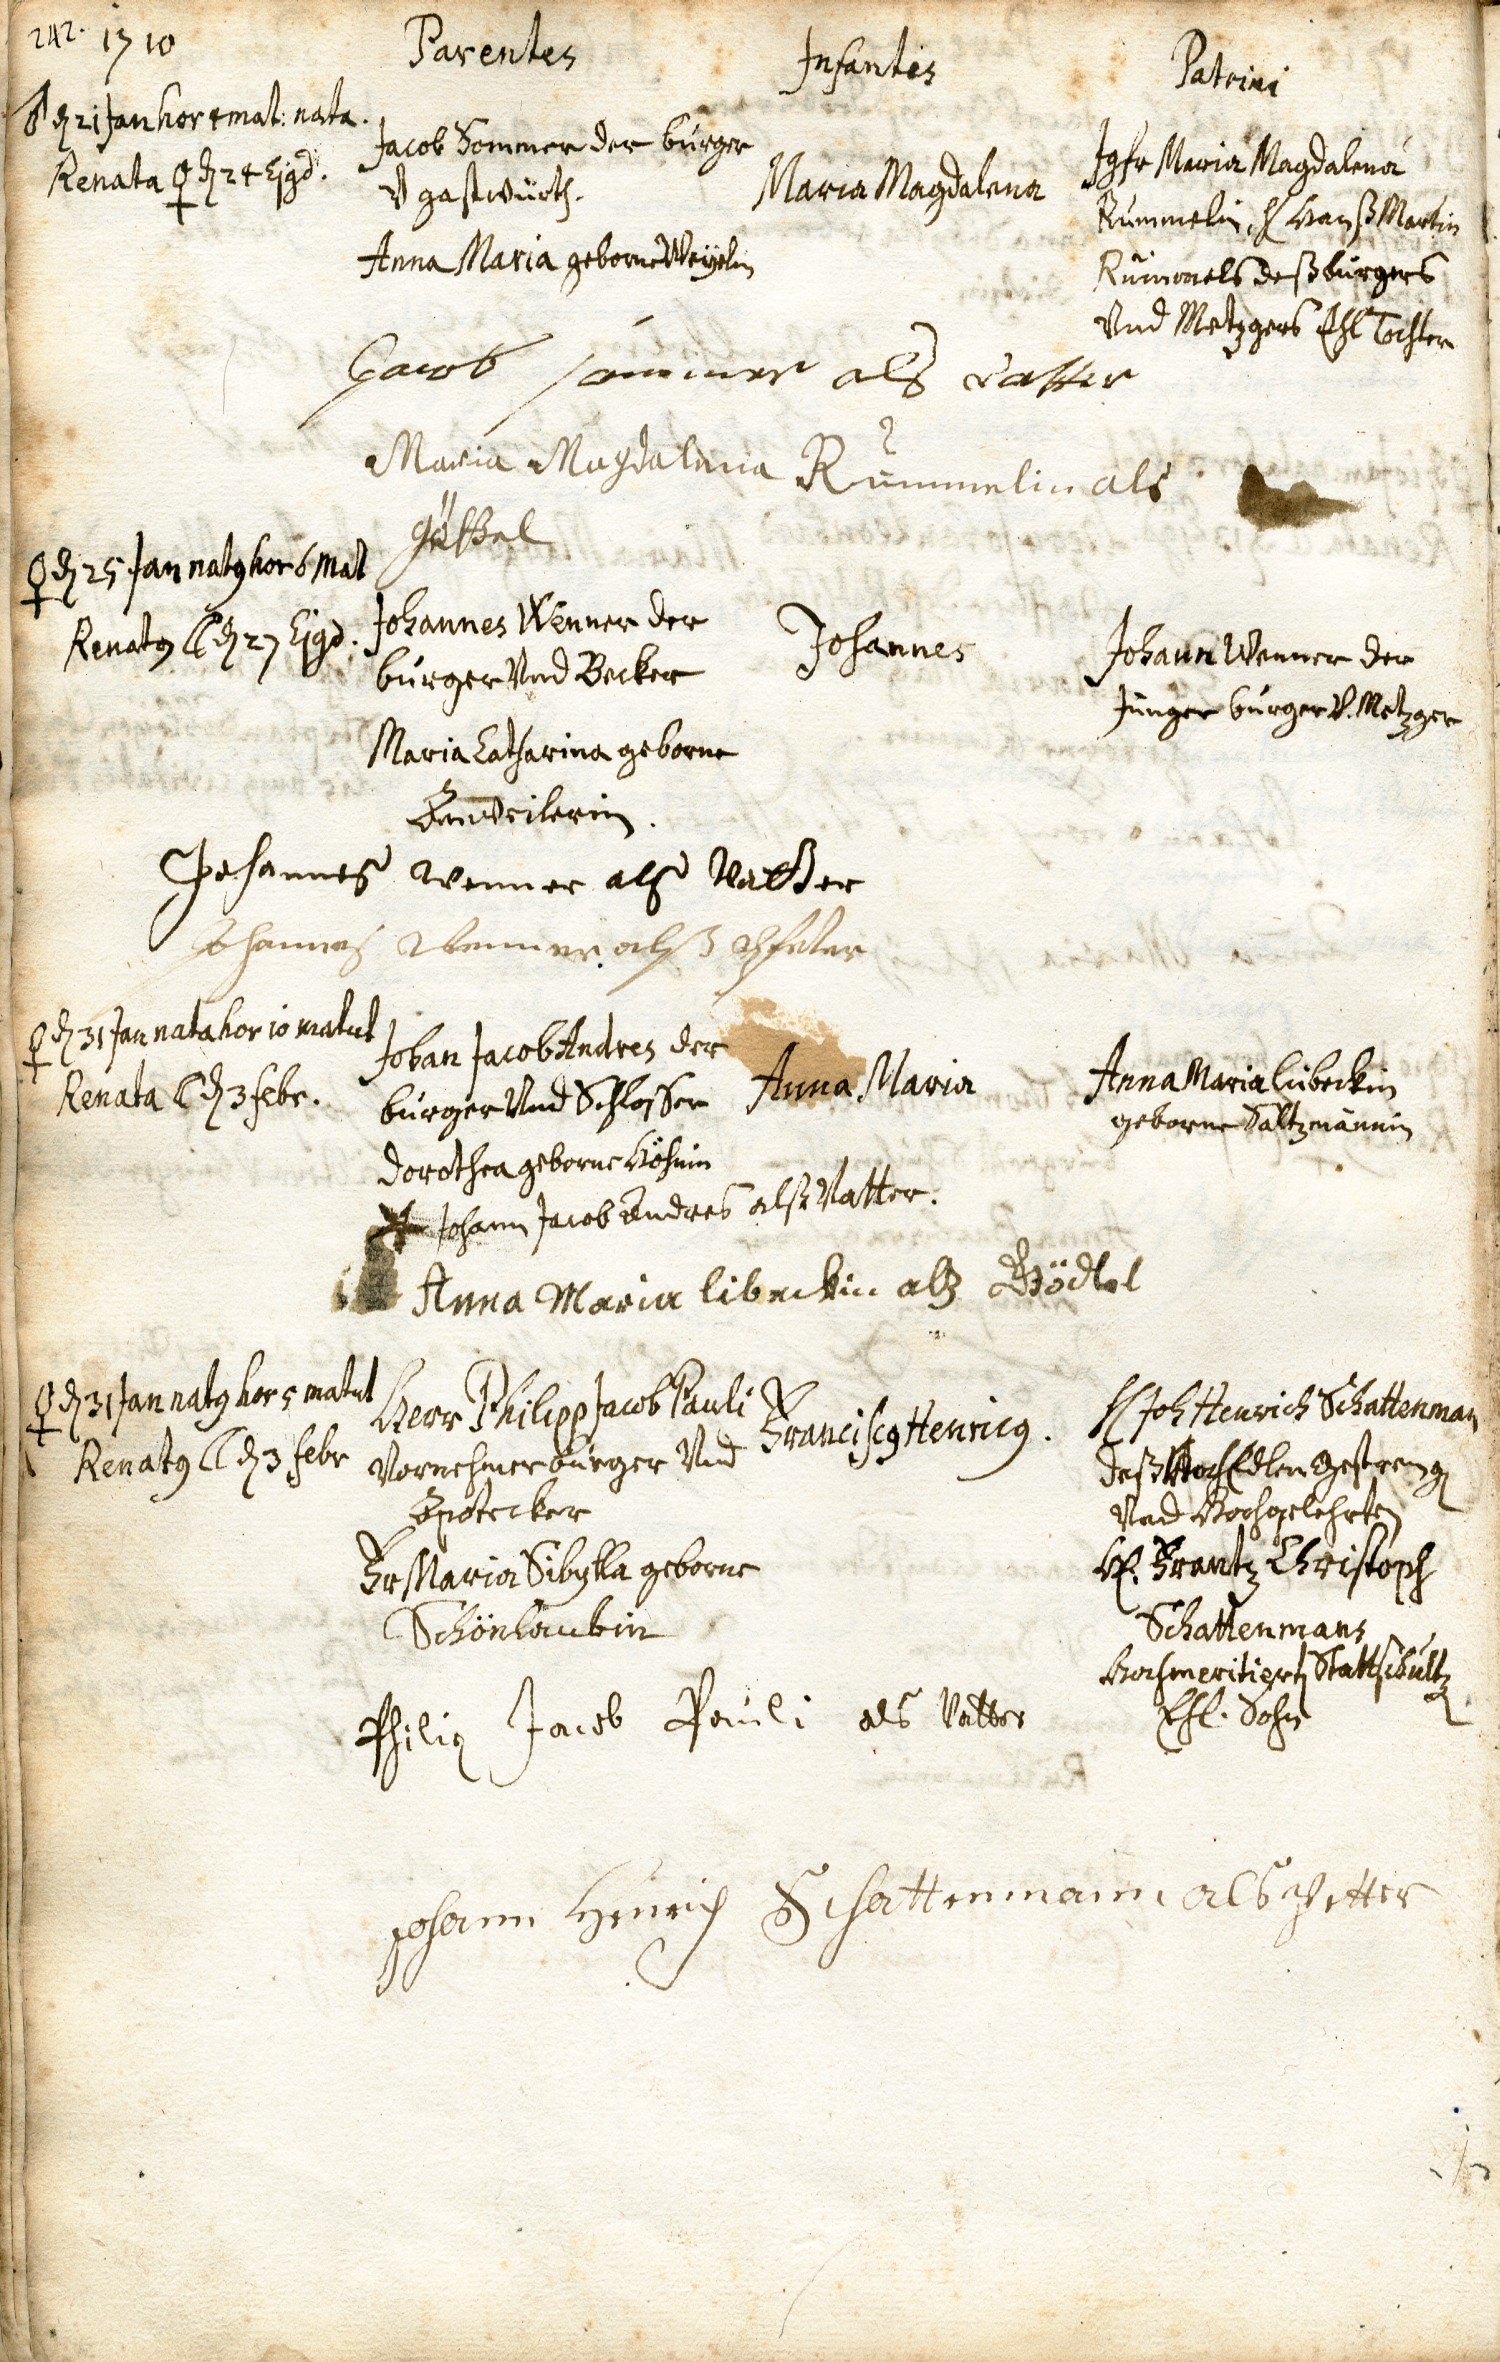 242. 1710
Parentes
Infantes
Patrini
♂ d 21 Jan hor 4 mat: nata.
Renata ♀ d 24 Ejgd.
Jacob Sommer der burger
V gastwürth.
Anna Maria geborne Weÿelin
Maria Magdalena
Jgfr Maria Magdalena
Rummelin, H Hanß Martin
Rummels deß burgers
Vnd Metzgers Ehl Tochter
Jacob sommer als vatter
Maria Magdalena Rummelin als
göttel
♀ d 25 Jan natus hor 6 mat
Renatus ☾ d 27 Ejgd.
Johannes Wenner der
burger Vnd Becker
Maria Catharina geborne
Johannes
Johann Wenner der
Junger burger V. Metzger
Johannes wenner alß Vatter
Johannes Wenner alß pfetter
♀ d 31 Jan nata hor 10 matut
Renata ☾ d 3 febr.
Johan Jacob Andres der
burger Vnd Schlosser
dorothea geborne Höhnin
Anna Maria
Anna Maria Lubeckin
geborne Saltzmännin
Johann Jacob Andres alß Vatter.
Anna Maria libeckin alß Gödtel
♀ d 31 Jan natus hor 5 matut
Renatus ☾ d 3 febr
Herr Philipp Jacob Pauli
Vornehmer burger Vnd
Apotecker
Fr Maria Sibylla geborne
Schönlaubin
Franciscus Henricus.
H Joh Henrich Schattenman
deß HochEdlen Gestreng
Vnd Hochgelehrten
H. Frantz Christoph
Schattenmans
Hochmeritierth Stattschultz
Ehl. Sohn
Philip Jacob Pauli als Vatter
Johann Henrich Schattenmann als Petter